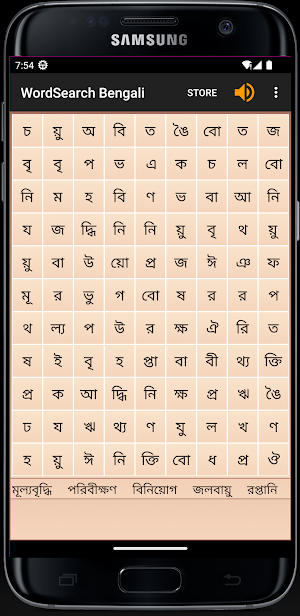 SAMSUNG
7:54
WordSearch Bengali STORE
চ য়ু অ বি ত ঙৈ বো ত জ
বৃ বৃ প ভ এ ক চ ল বো
নি ম হ বি ণ ভ বা আ নি
য জ দ্ধি নি নি য়ু বৃ থ য়ু
য়ু বা উ য়ো প্র জ ঈ ঞ ফ
মূ র ভু গ বো ষ র র প
থ ল্য প উ র ক্ষ ঐ রি ত
ষ ই বৃ হ প্তা বা বী থ্য ক্তি
প্র ক আ দ্ধি নি ক্ষ প্র ঋ ঙৈ
ঢ য ঋ থ্য ণ যু ল খ ণ
হ য়ু ঈ নি ক্তি বো ধ প্র ঔ
মূল্যবৃদ্ধি পরিবীক্ষণ বিনিয়োগ জলবায়ু রপ্তানি